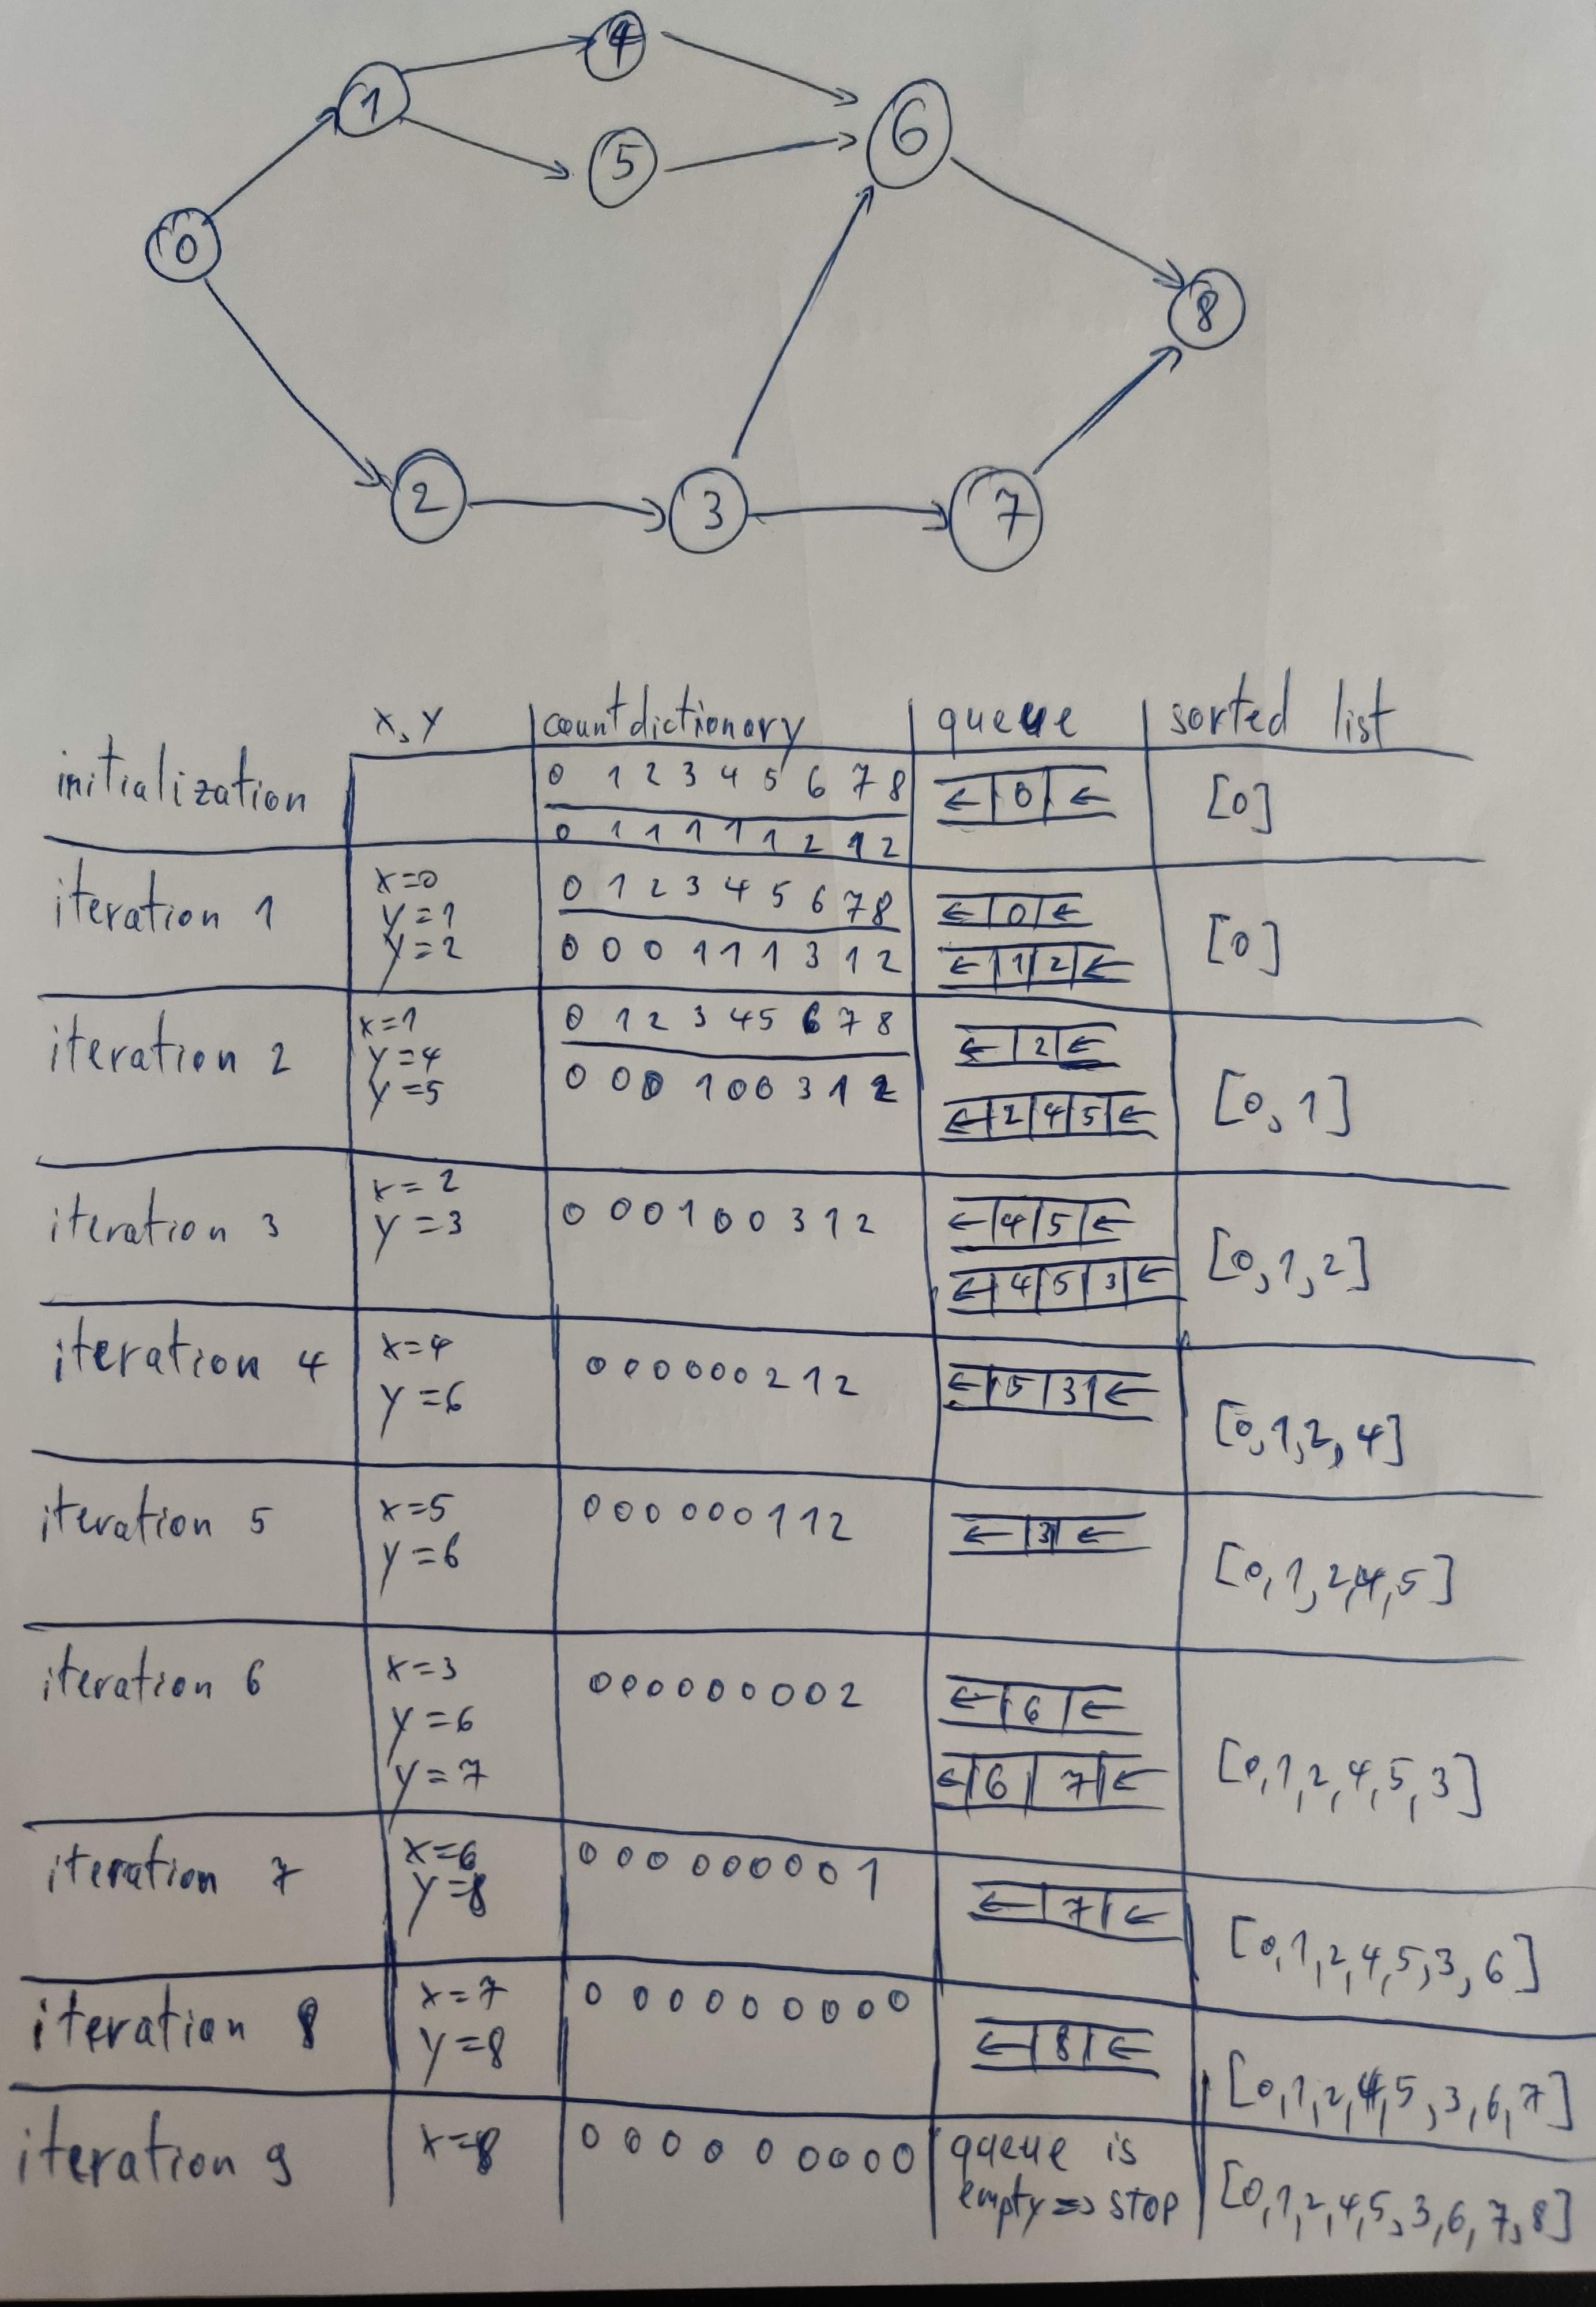 4
1
6
5
0
8
2 3 7
x, y count dictionary queue sorted list
initialization
0 1 2 3 4 5 6 7 8
0 1 1 1 1 1 2 1 2
← 0 ←
[0]
iteration 1
x=0
y=1
y=2
0 1 2 3 4 5 6 7 8
0 0 0 1 1 1 3 1 2
← 0 ←
← 1 2 ←
[0]
iteration 2
x=1
y=4
y=5
0 1 2 3 4 5 6 7 8
0 0 0 1 0 0 3 1 2
← 2 ←
← 2 4 5 ←
[0, 1]
iteration 3
x=2
y=3
0 0 0 1 0 0 3 1 2
← 4 5 ←
← 4 5 3 ←
[0, 1, 2]
iteration 4
x=4
y=6
0 0 0 0 0 0 2 1 2
← 5 3 ←
[0, 1, 2, 4]
iteration 5
x=5
y=6
0 0 0 0 0 0 1 1 2
← 3 ←
[0, 1, 2, 4, 5]
iteration 6
x=3
y=6
y=7
0 0 0 0 0 0 0 0 2
← 6 ←
← 6 7 ←
[0, 1, 2, 4, 5, 3]
iteration 7
x=6
y=8
0 0 0 0 0 0 0 0 1
← 7 ←
[0, 1, 2, 4, 5, 3, 6]
iteration 8
x=7
y=8
0 0 0 0 0 0 0 0 0
← 8 ←
[0, 1, 2, 4, 5, 3, 6, 7]
iteration 9
x=8
0 0 0 0 0 0 0 0 0
queue is
empty => STOP
[0, 1, 2, 4, 5, 3, 6, 7, 8]